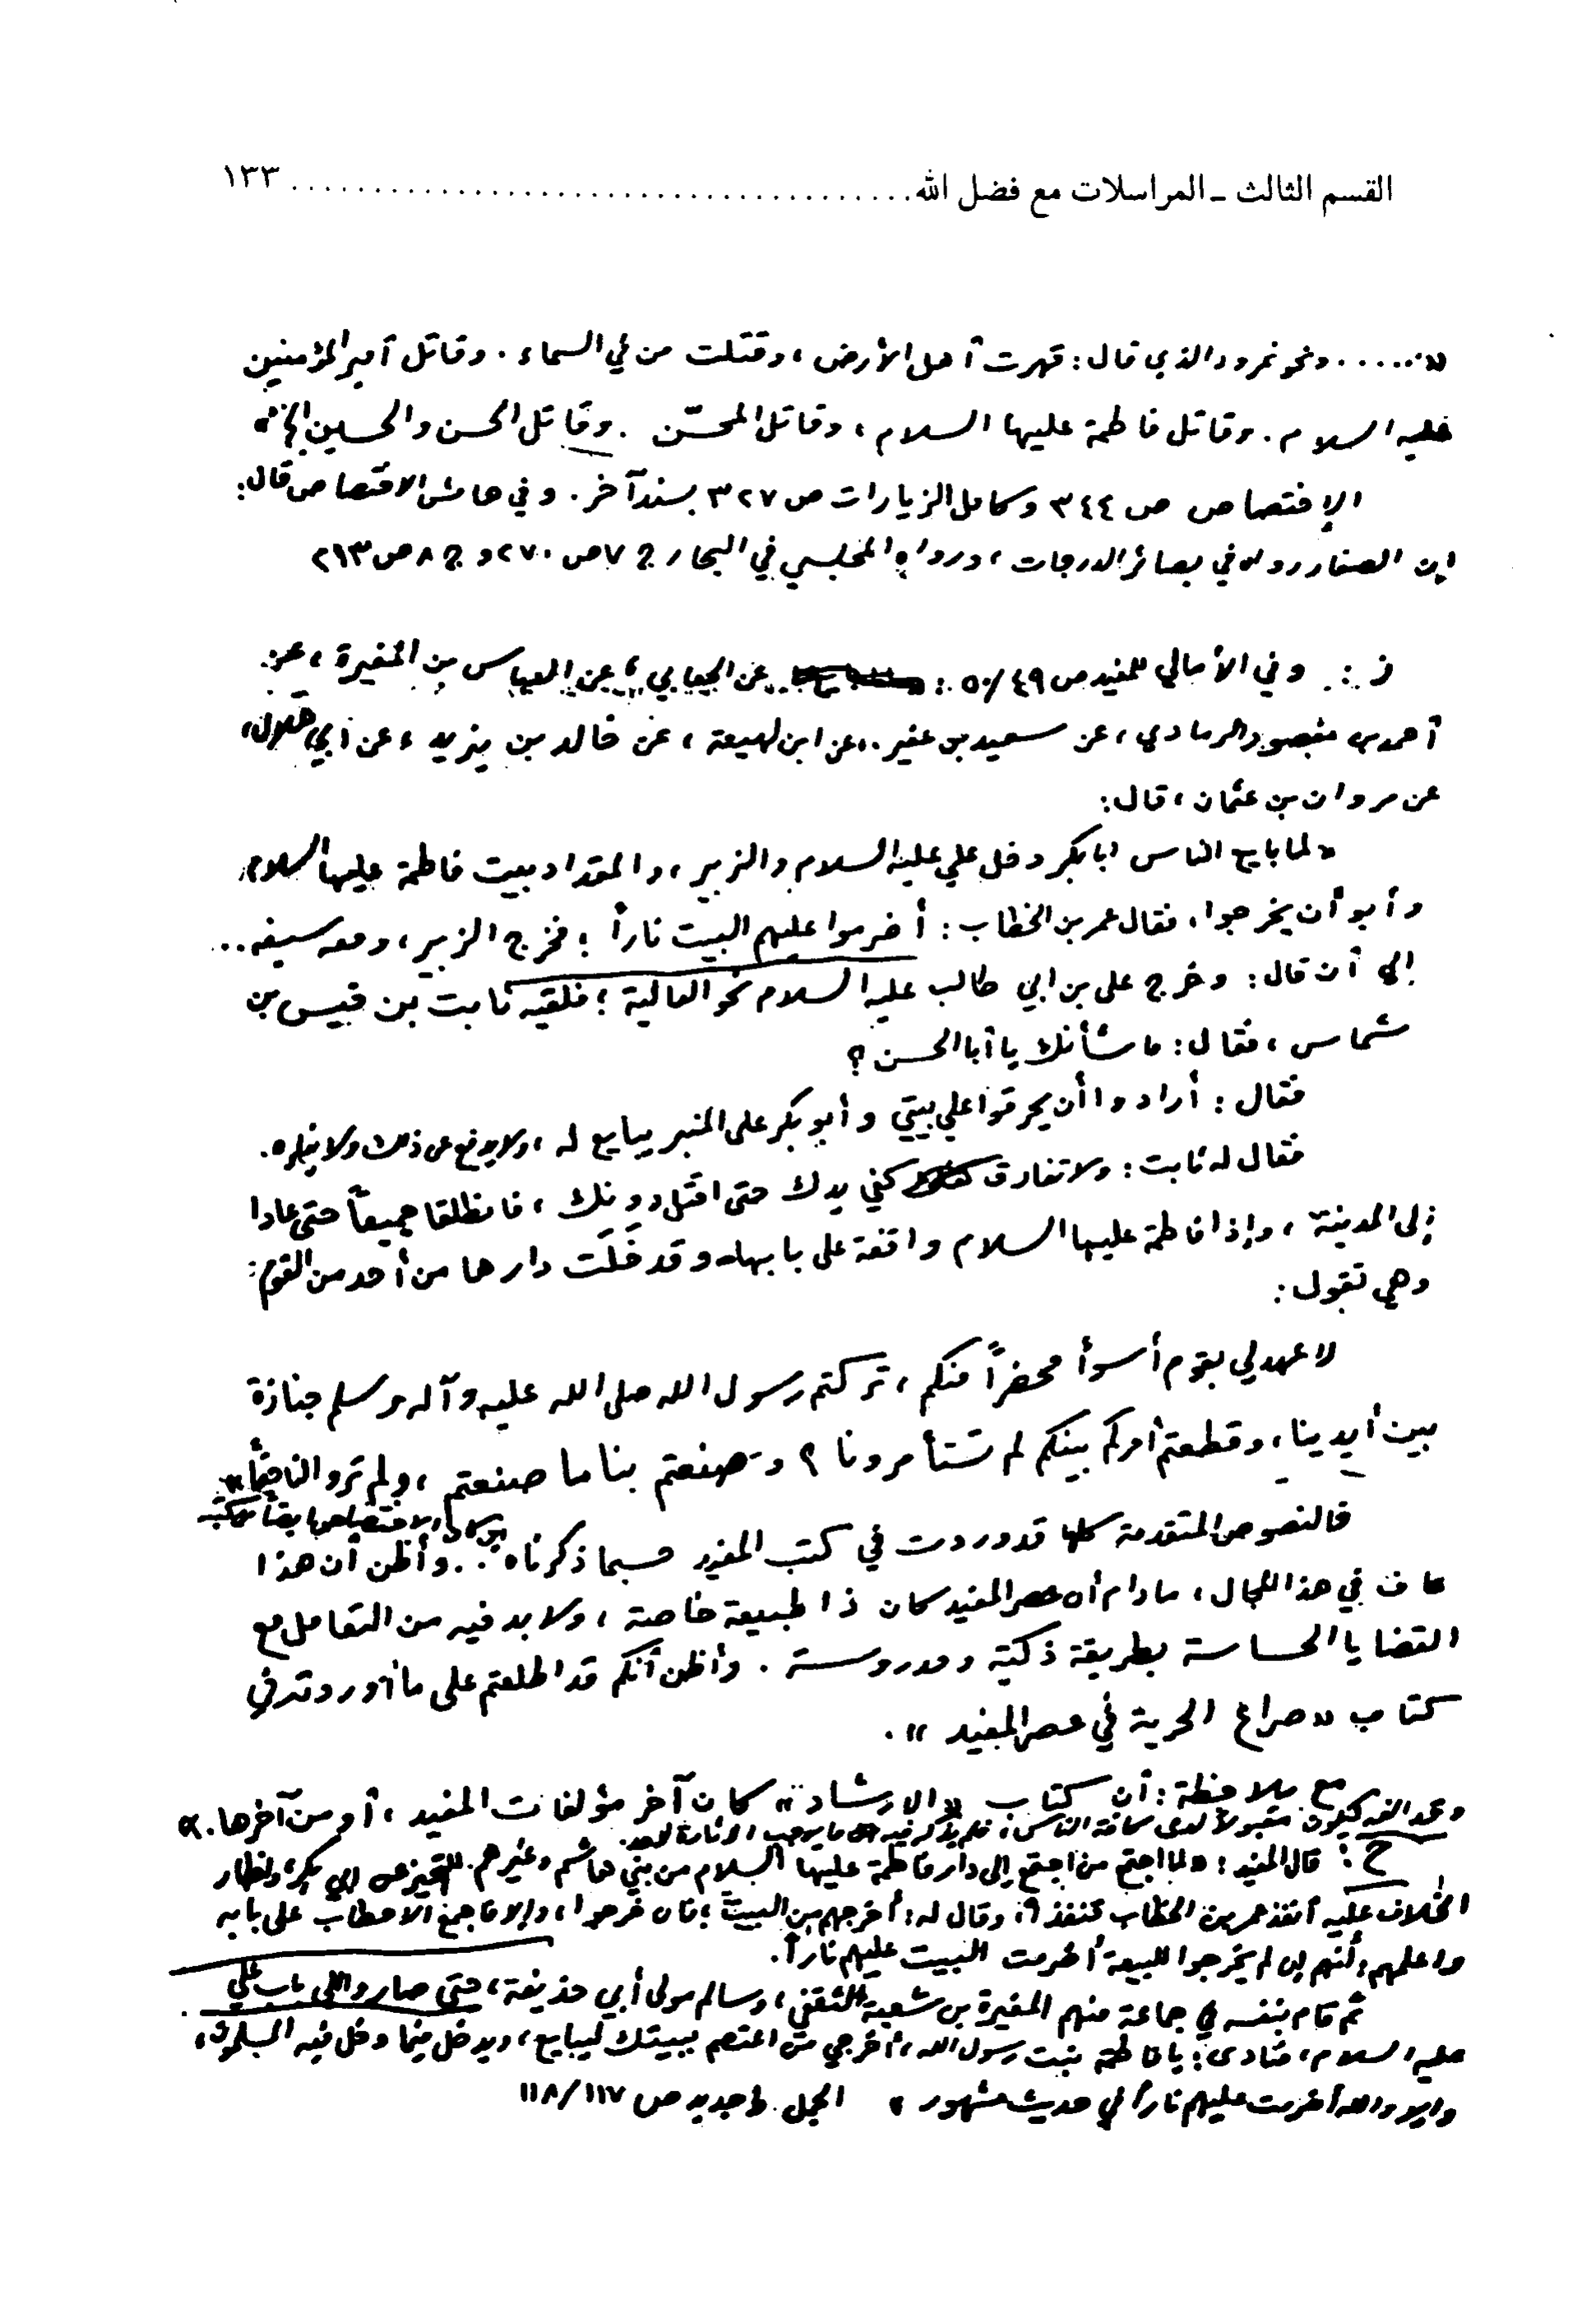 القسم الثالث ـ المراسلات مع فضل الله ........................................ ١٣٣
«....... ونحو نمرود الذي قال: قهرت أهل الأرض، وقتلت من في السماء. وقاتل أمير المؤمنين
عليه السلام. وقاتل فاطمة عليها السلام، وقاتل المحسّن. وقاتل الحسن والحسين الخ»
الإختصاص ص ٣٤٤ وكامل الزيارات ص ٣٢٧ بسند آخر. وفي هامش الاختصاص قال:
إن الصفار رواه في بصائر الدرجات، ورواه المجلسي في البحار ج ٧ ص ٢٧٠ و ج ٨ ص ٢١٣
ز: وفي الأمالي للمفيد ص ٥٠/٤٩: عن الجعابي، عن العباس بن المغيرة، عن
أحمد بن منصور الرمادي، عن سعيد بن عفير، عن ابن لهيعة، عن خالد بن يزيد، عن ابي هلال،
عن مروان بن عثمان، قال:
«لما بايع الناس ابا بكر دخل علي عليه السلام والزبير، والمقداد بيت فاطمة عليها السلام،
وأبوا أن يخرجوا، فقال عمر بن الخطاب: أضرموا عليهم البيت ناراً؛ فخرج الزبير، ومعه سيفه..
إلى أن قال: وخرج علي بن ابي طالب عليه السلام نحو العالية؛ فلقيه ثابت بن قيس بن
شماس، فقال: ما شأنك يا أبا الحسن؟
فقال: أرادوا أن يحرقوا علي بيتي وأبو بكر على المنبر يبايع له، ولا يدفع عن ذلك ولا ينكره.
فقال له ثابت: ولا تفارق كفي يدك حتى اقتل دونك، فانطلقا جميعاً حتى عادا
إلى المدينة، وإذا فاطمة عليها السلام واقفة على بابها، وقد خَلَت دارها من أحد من القوم:
وهي تقول:
لا عهد لي بقوم أسوأ محضراً منكم، تركتم رسول الله صلى الله عليه وآله وسلم جنازة
بين أيدينا، وقطعتم أمركم بينكم لم تستأمرونا؟ وصنعتم بنا ما صنعتم، ولم تروا لنا حقاً»
فالنصوص المتقدمة كلها قد وردت في كتب المفيد حسبما ذكرناه.. وأظن أن هذا
كاف في هذا المجال، ما دام أن عصر المفيد كان ذا طبيعة خاصة، ولا بد فيه من التعامل مع
القضايا الحساسة بطريقة ذكية ومدروسة. وأظن أنكم قد اطلعتم على ما أوردته في
كتاب «صراع الحرية في عصر المفيد».
مع ملاحظة: أن كتاب «الارشاد» كان آخر مؤلفات المفيد، أو من آخرها.
ليكون مقبولاً لدى كافة الناس، فلم يذكر فيه ما يوجب
ح: قال المفيد: «لما اجتمع من اجتمع إلى دار فاطمة عليها السلام من بني هاشم وغيرهم للتحيز عن ابي بكر، وإظهار
الخلاف عليه أنفذ عمر بن الخطاب قنفذاً، وقال له: أخرجهم من البيت؛ فان خرجوا، وإلا فاجمع الاحطاب على بابه
واعلمهم: أنهم إن لم يخرجوا للبيعة أضرمت البيت عليهم ناراً.
ثم قام بنفسه في جماعة منهم المغيرة بن شعبة الثقفي، وسالم مولى أبي حذيفة، حتى صاروا إلى باب علي
عليه السلام، فنادى: يا فاطمة بنت رسول الله، أخرجي من اعتصم ببيتك ليبايع، ويدخل فيما دخل فيه المسلمون،
وإلا والله أضرمت عليهم ناراً في حديث مشهور» الجمل ط جديد ص ١١٨/١١٧